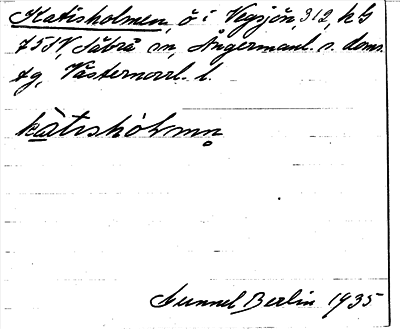 Katisholmen, ö i Vegsjön, 312, k G
f 5 SV, Säbrå sn, Ångermanl. s. doms.
fg, Västernorrl. l.
kàtɩshòlmn̥
Gunnel Berlin 1935